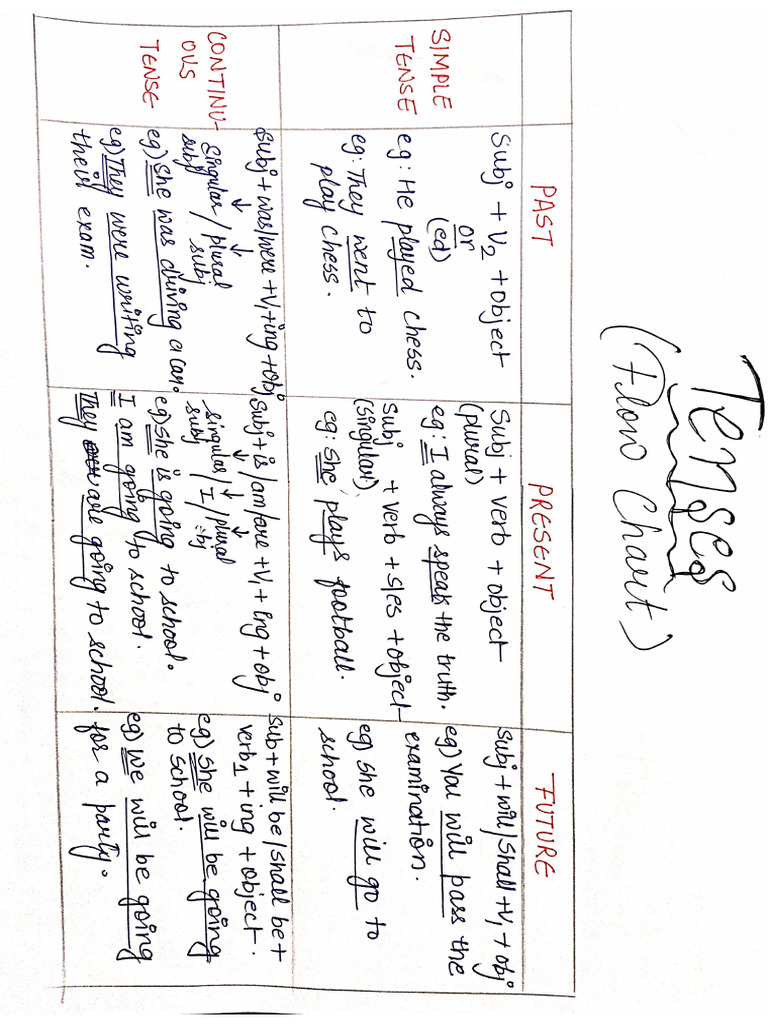 Tenses
(Flow Chart)
PAST
PRESENT
FUTURE
SIMPLE
TENSE
Subj + V2 + object
or
(ed)
eg: He played chess.
eg: They went to
play chess.
Subj + verb + object
(plural)
eg: I always speak the truth.
Subj + verb + s/es + object
(singular)
eg: she plays football.
subj + will/shall + V1 + obj
eg) You will pass the
examination.
eg) she will go to
school.
CONTINU-
OUS
TENSE
subj + was/were + V1 + ing + obj
↓ ↓
singular / plural
subj subj
eg) She was driving a car.
eg) They were writing
their exam.
subj + is/am/are + V1 + ing + obj
↓ ↓ ↓
singular / I / plural
subj
eg) She is going to school.
I am going to school.
They are going to school.
sub + will be/shall be +
verb1 + ing + object.
eg) She will be going
to school.
eg) We will be going
for a party.